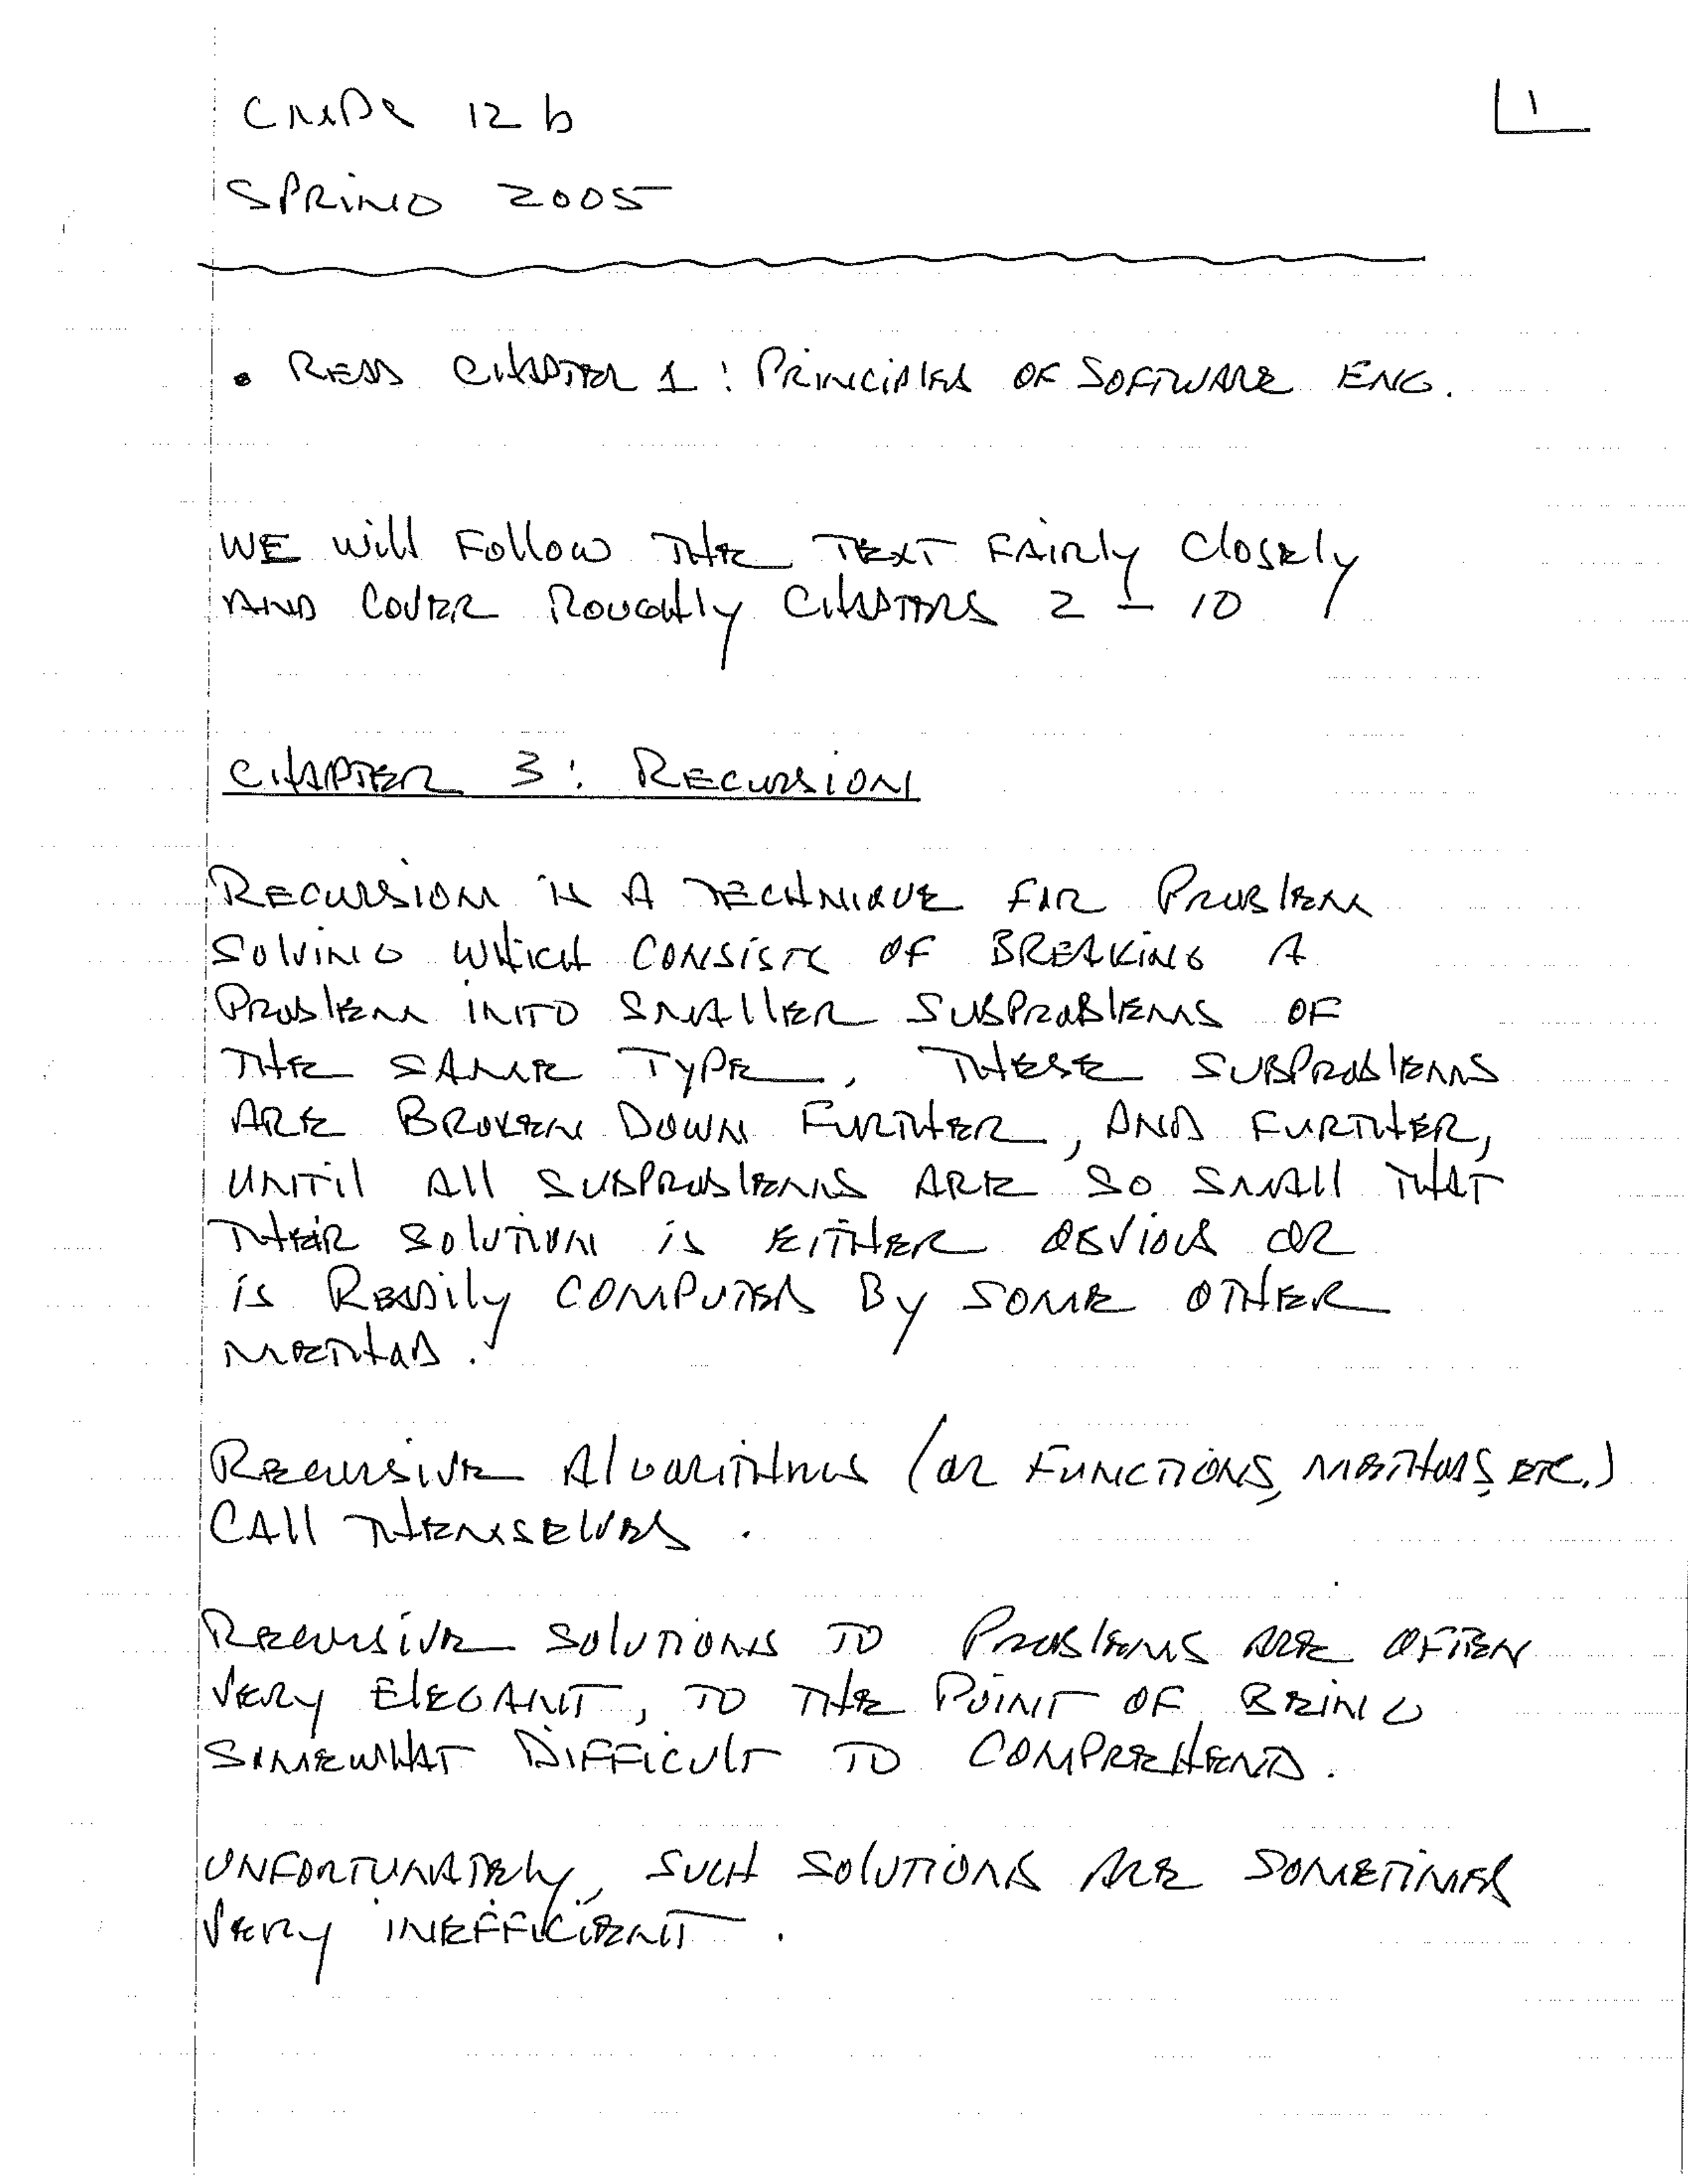 CMPS 12b
1
SPRING 2005
• READ CHAPTER 1 : PRINCIPLES OF SOFTWARE ENG.
WE Will Follow THE TEXT FAIRly Closely
AND COVER ROUGHly CHAPTERS 2 - 10
CHAPTER 3 : RECURSION
RECURSION IS A TECHNIQUE FOR PROBlEM
SOlVING WHICH CONSISTS OF BREAKING A
PROBlEM INTO SMAllER SUBPROBlEMS OF
THE SAME TYPE. THESE SUBPROBlEMS
ARE BROKEN DOWN FURTHER, AND FURTHER,
UNTIl All SUBPROBlEMS ARE SO SMAll THAT
THEIR SOlUTION is EITHER OBVIOUS OR
is READily COMPUTED By SOME OTHER
METHOD.
RECURSIVE AlGORITHMS (OR FUNCTIONS, METHODS, ETC.)
CAll THEMSElVES.
RECURSIVE SOlUTIONS TO PROBlEMS ARE OFTEN
VERY ElEGANT, TO THE POINT OF BEING
SOMEWHAT DIFFICUlT TO COMPREHEND.
UNFORTUNATEly, SUCH SOlUTIONS ARE SOMETIMES
VERy INEFFICIENT.